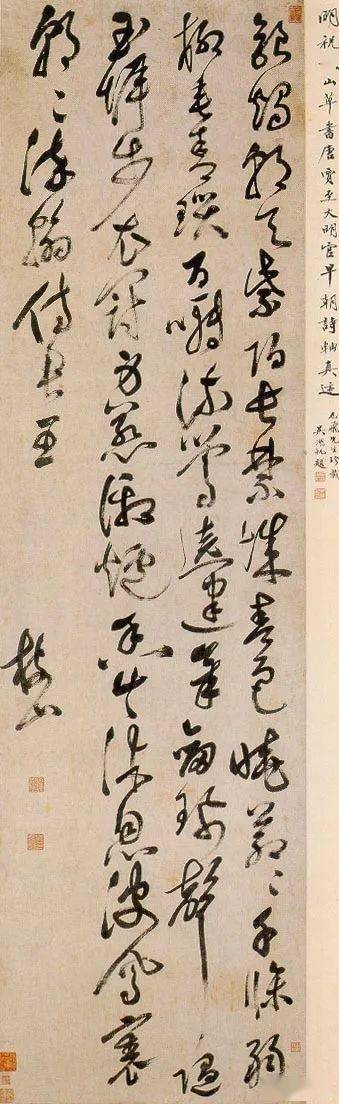 明祝山草書唐賈至大明宮早朝詩軸真迹
先生珍藏
吳湖帆題
銀燭朝天紫陌長禁城春色曉蒼〻千條弱
柳垂青瑣百囀流鶯遶建章劍珮聲隨
玉墀步衣冠身惹御爐香共沐恩波鳳裏
朝〻染翰侍君王
枝山